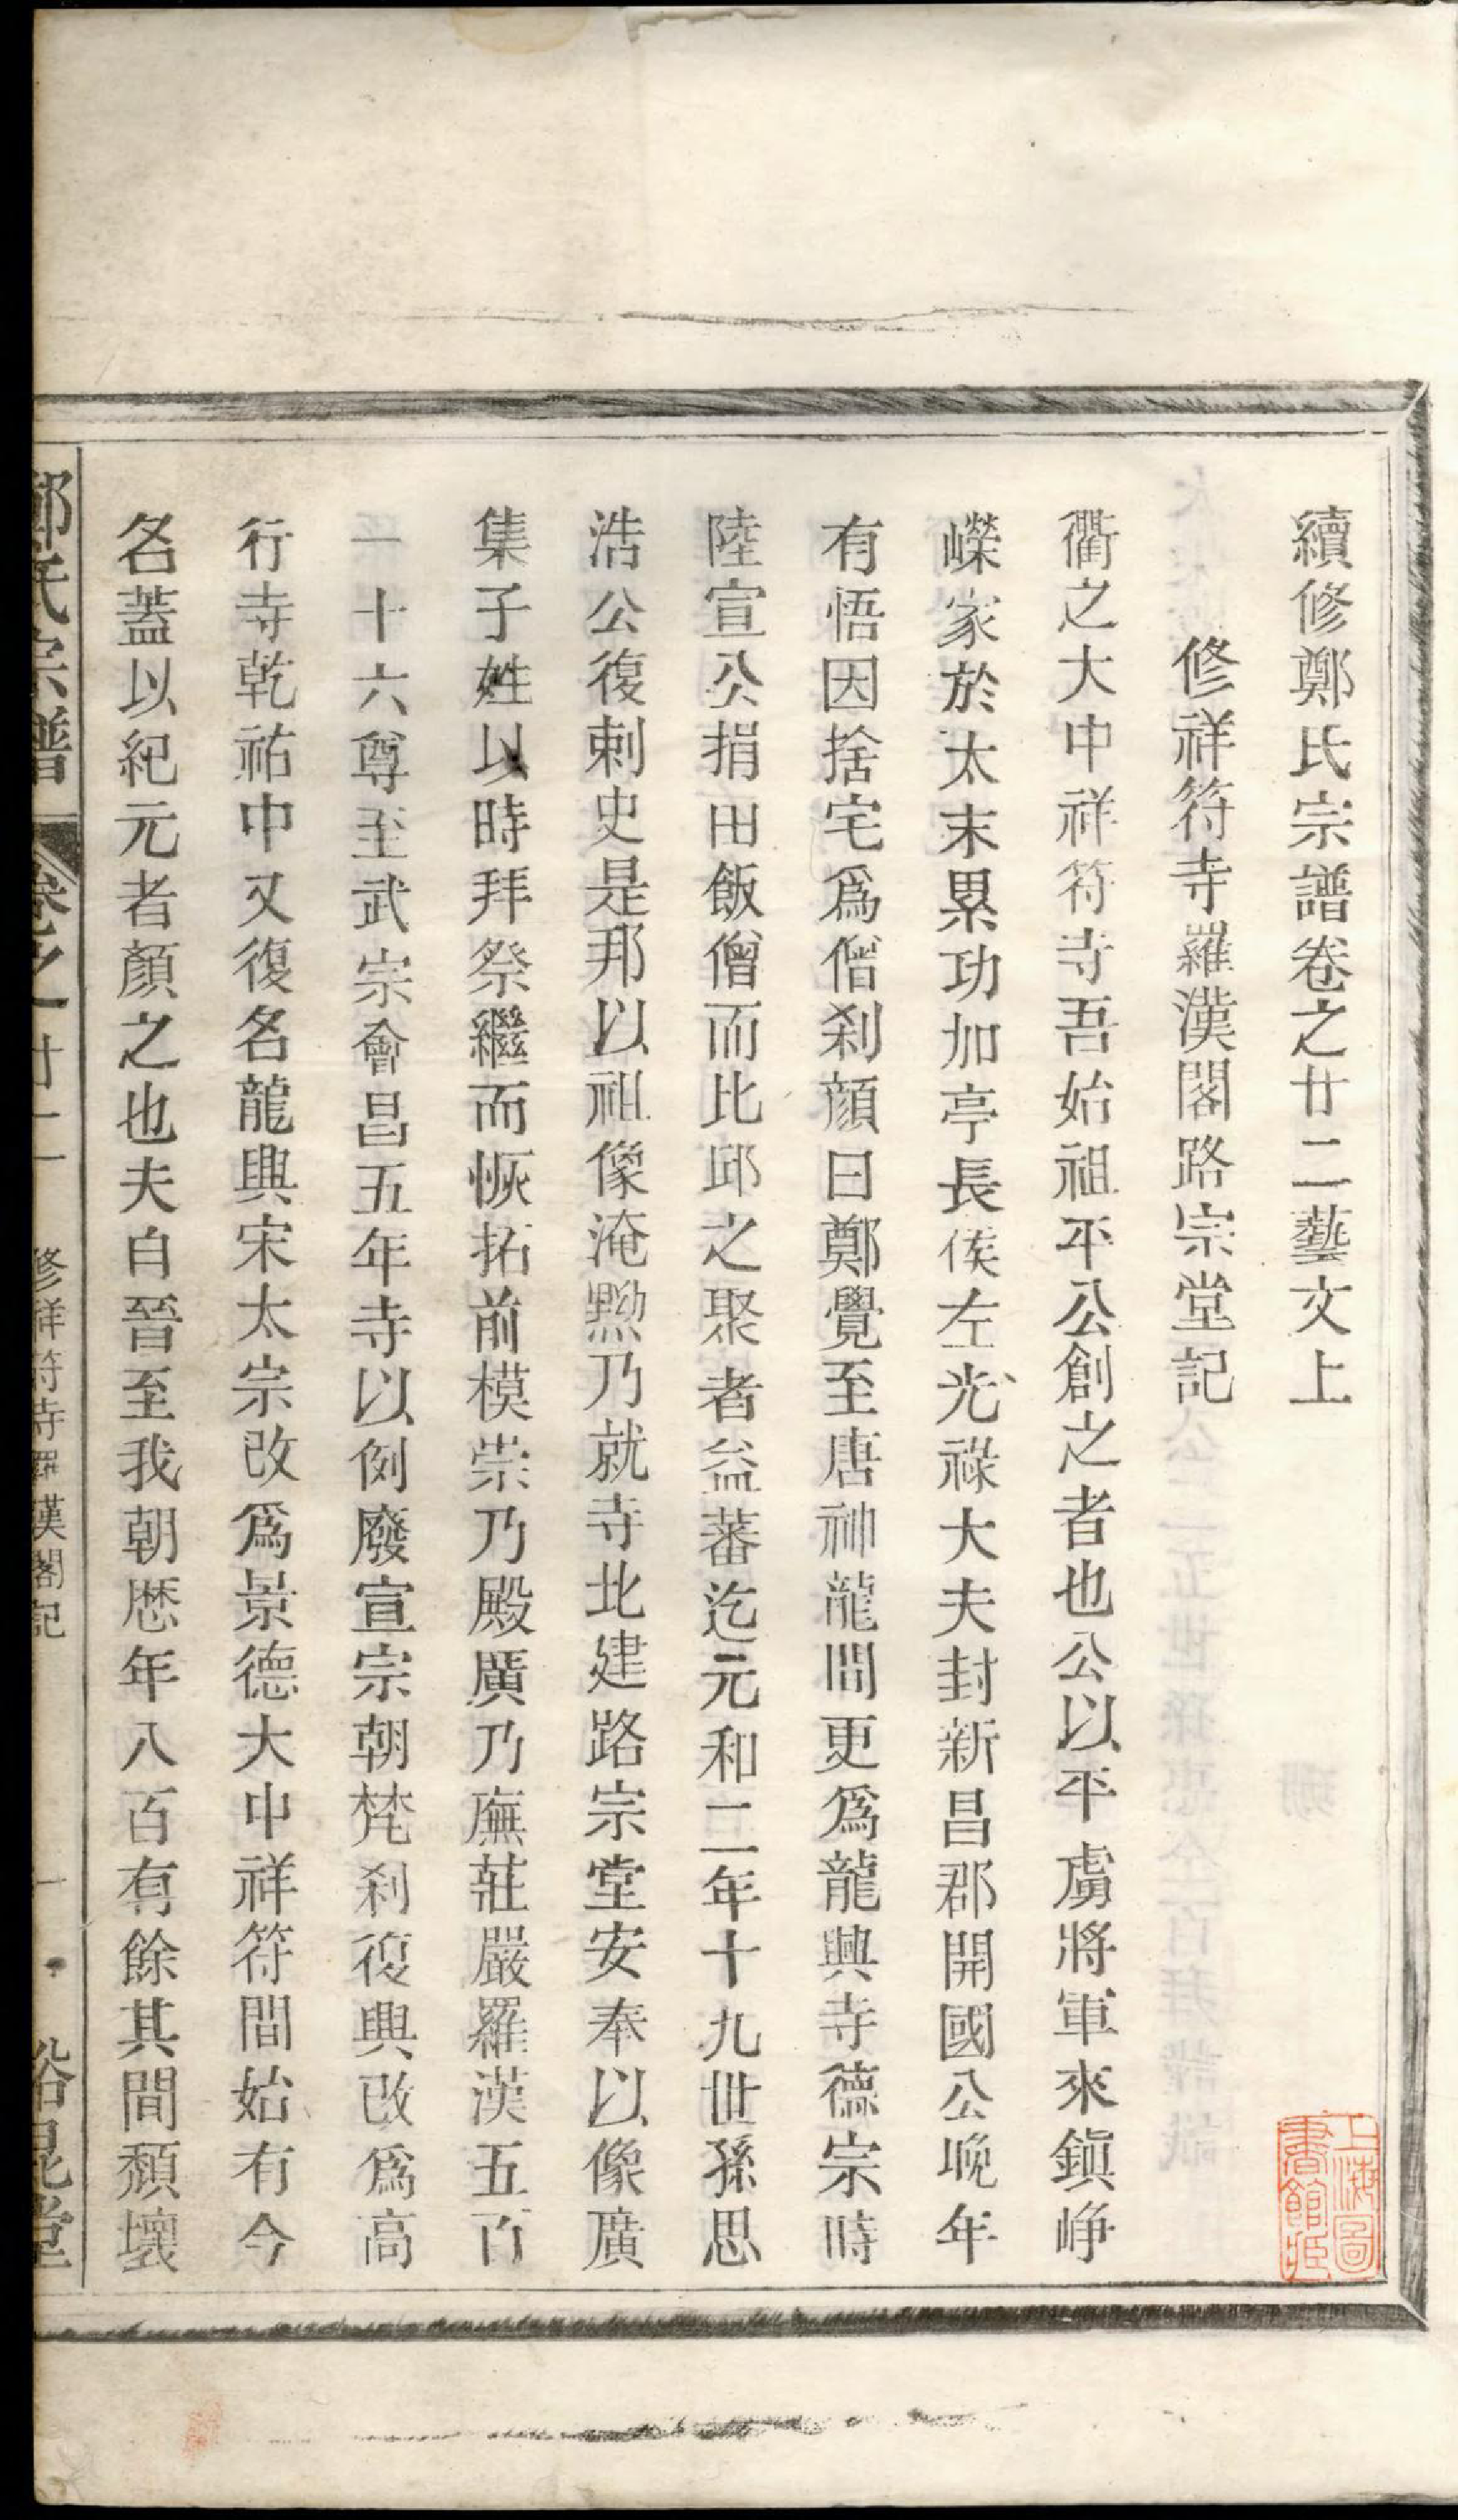 續修鄭氏宗譜卷之廿二藝文上
修祥符寺羅漢閣路宗堂記
衢之大中祥符寺吾始祖平公創之者也公以平虜將軍來鎮崢
嶸家於太末累功加亭長侯左光祿大夫封新昌郡開國公晚年
有悟因捨宅爲僧刹顏曰鄭覺至唐神龍間更爲龍興寺德宗時
陸宣公捐田飯僧而比邱之聚者益蕃迄元和二年十九世孫思
浩公復刺史是邦以祖像淹黝乃就寺北建路宗堂安奉以像廣
集子姓以時拜祭繼而恢拓前模崇乃殿廣乃廡莊嚴羅漢五百
一十六尊至武宗會昌五年寺以例廢宣宗朝梵刹復興改爲高
行寺乾祐中又復名龍興宋太宗改爲景德大中祥符間始有今
名蓋以紀元者顏之也夫自晉至我朝歷年八百有餘其間頹壞
鄭氏宗譜 卷之廿二 修祥符寺羅漢閣記 一 裕昆堂
上海圖書館藏